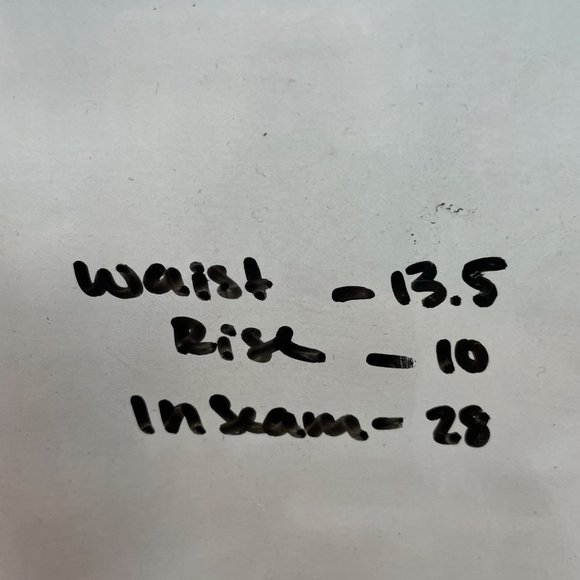 Waist - 13.5
Rise - 10
Inseam - 28